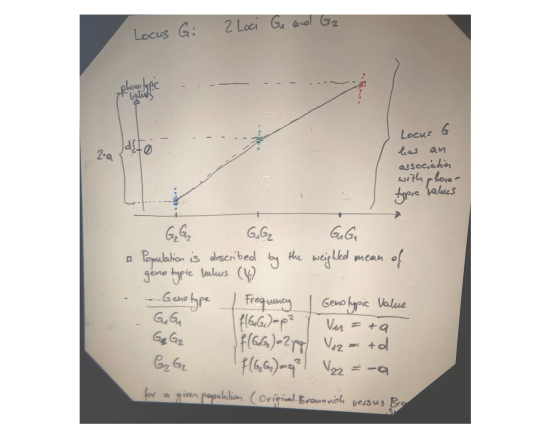 Locus G: 2 Loci G1 and G2
phenotypic
values
2·a
d{
Ø
Locus G
has an
association
with pheno-
typic values
G2G2 G1G2 G1G1
Population is described by the weighted mean of
genotypic values (Vi)
Genotype Frequency Genotypic Value
G1G1 f(G1G1)=p² V11 = +a
G1G2 f(G1G2)=2pq V12 = +d
G2G2 f(G2G2)=q² V22 = -a
for a given population (Original Braunvieh versus